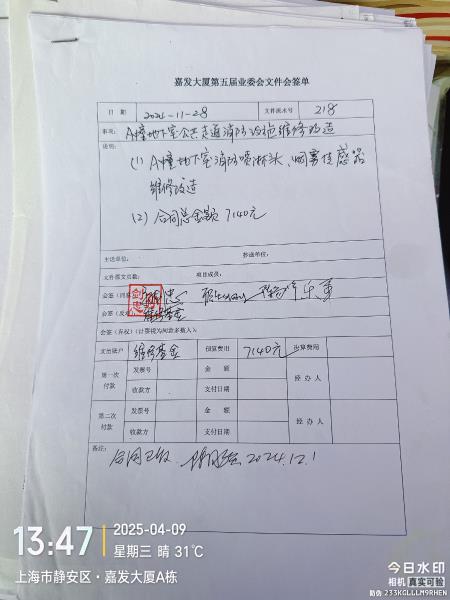 嘉发大厦第五届业委会文件会签单
日期 2024-11-28 文件流水号 218
事项: A幢地下室公共走道消防设施维修改造
说明:
(1) A幢地下室消防喷淋头、烟雾传感器
维修改造
(2) 合同总金额7140元
主送单位: 抄送单位:
文件原文页数: 项目成员:
会签(同意)
会签(反对) 维修基金
会签(弃权)(计票视为同款多数人):
支出账户 维修基金 预算费用 7140元 决算费用
第一次付款 发票号 金额 经办人
收款方 支付日期
第二次付款 发票号 金额 经办人
收款方 支付日期
备注: 合同已签 2024.12.1
13:47 2025-04-09
星期三 晴 31℃
上海市静安区·嘉发大厦A栋
今日水印
相机 真实可验
防伪 233KGLLLM9RHEN